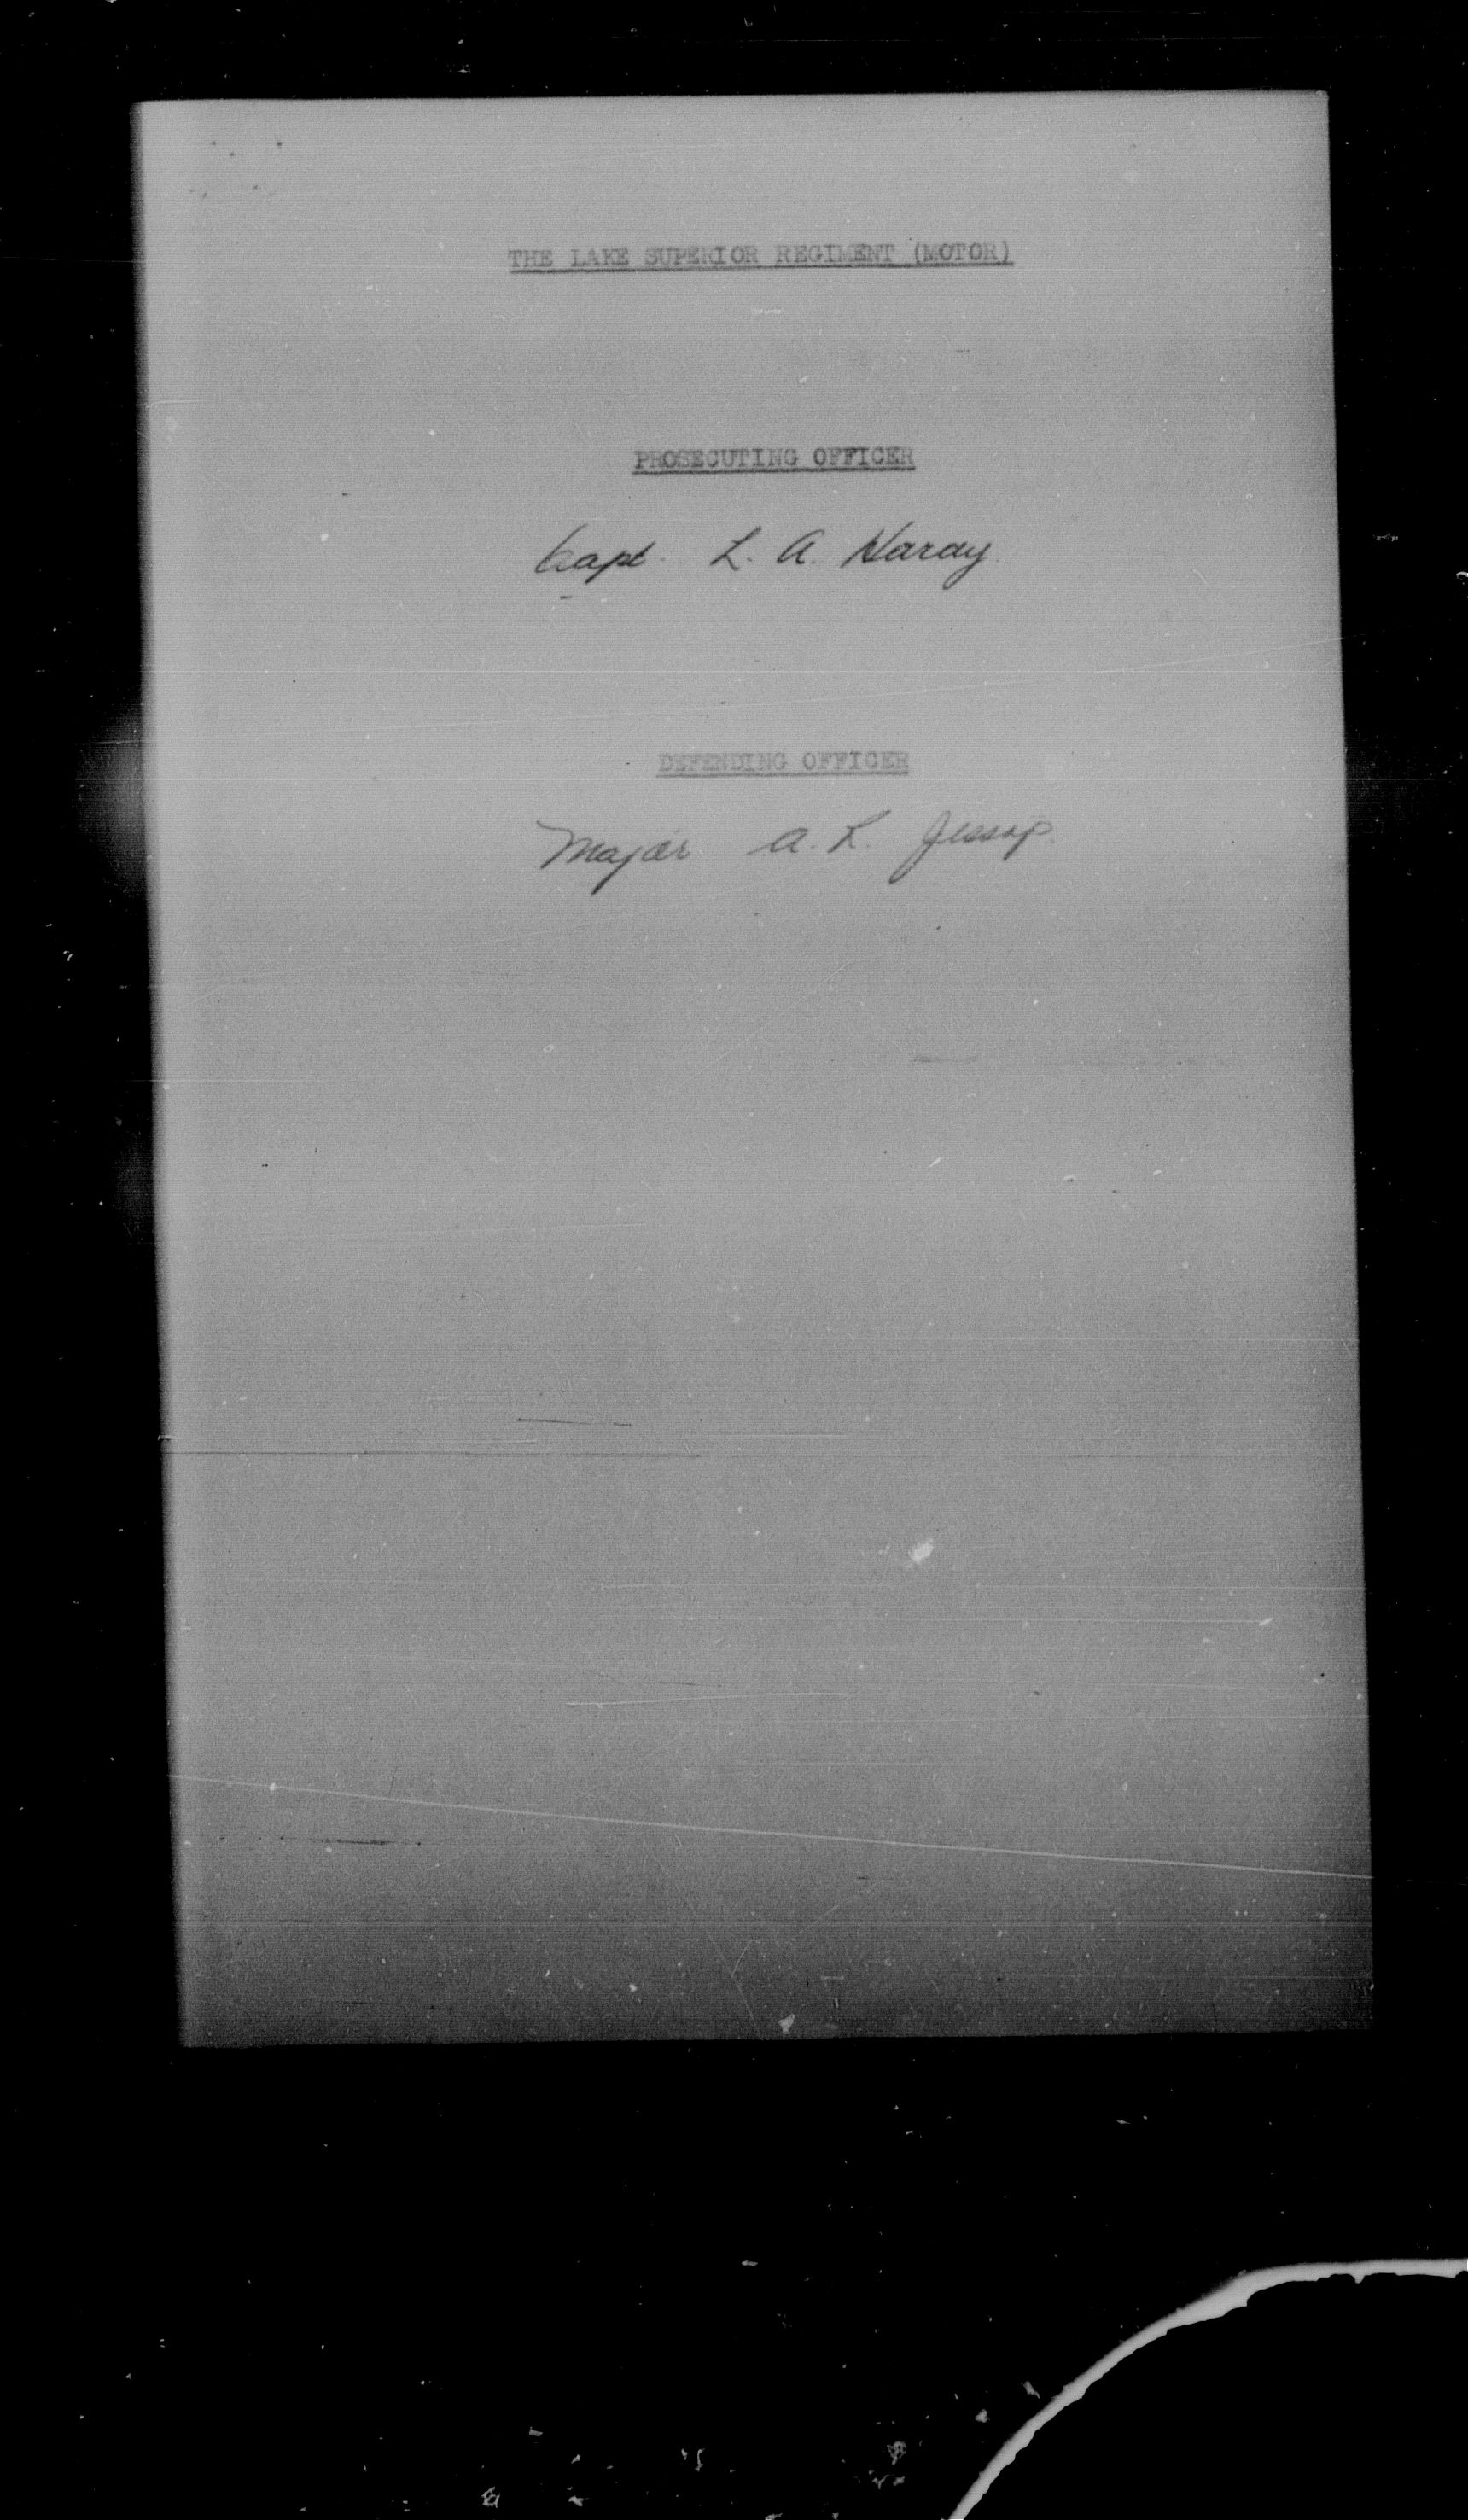 THE LAKE SUPERIOR REGIMENT (MOTOR)
PROSECUTING OFFICER
Capt. L. A. Haray
DEFENDING OFFICER
Major A. L. Jessop.